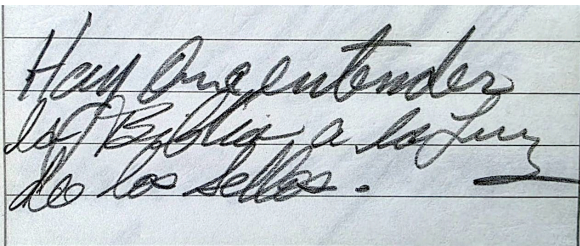 Hay que entender
la Biblia a la Luz
de los sellos.